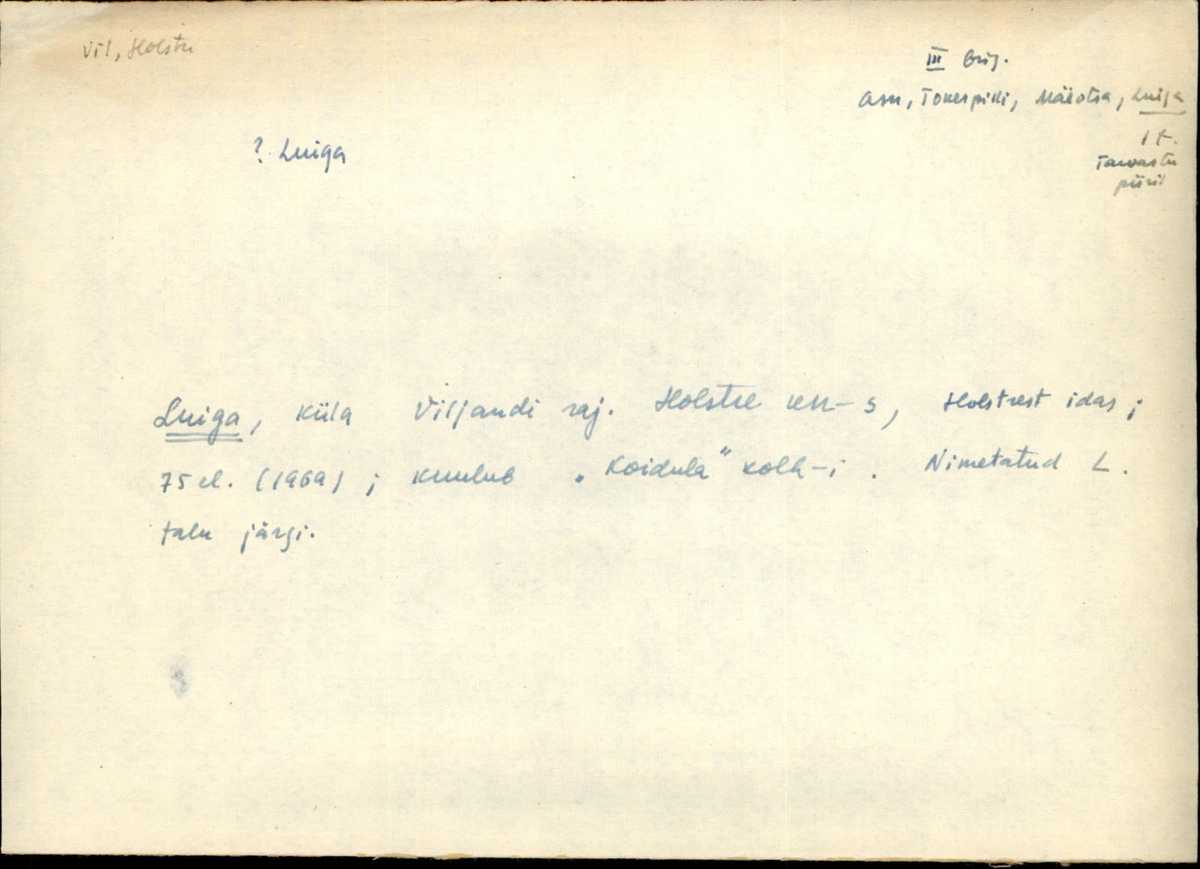 Vil, Holstre
III brig.
Asu, Tonerpilli, Mäeotsa, Luiga
1 t.
Tarvastu
piiril
? Luiga
Luiga, küla Viljandi raj. Holstre kn-s, Holstrest idas;
75 el. (1969); kuulub „Koidula” kolh-i. Nimetatud L.
talu järgi.